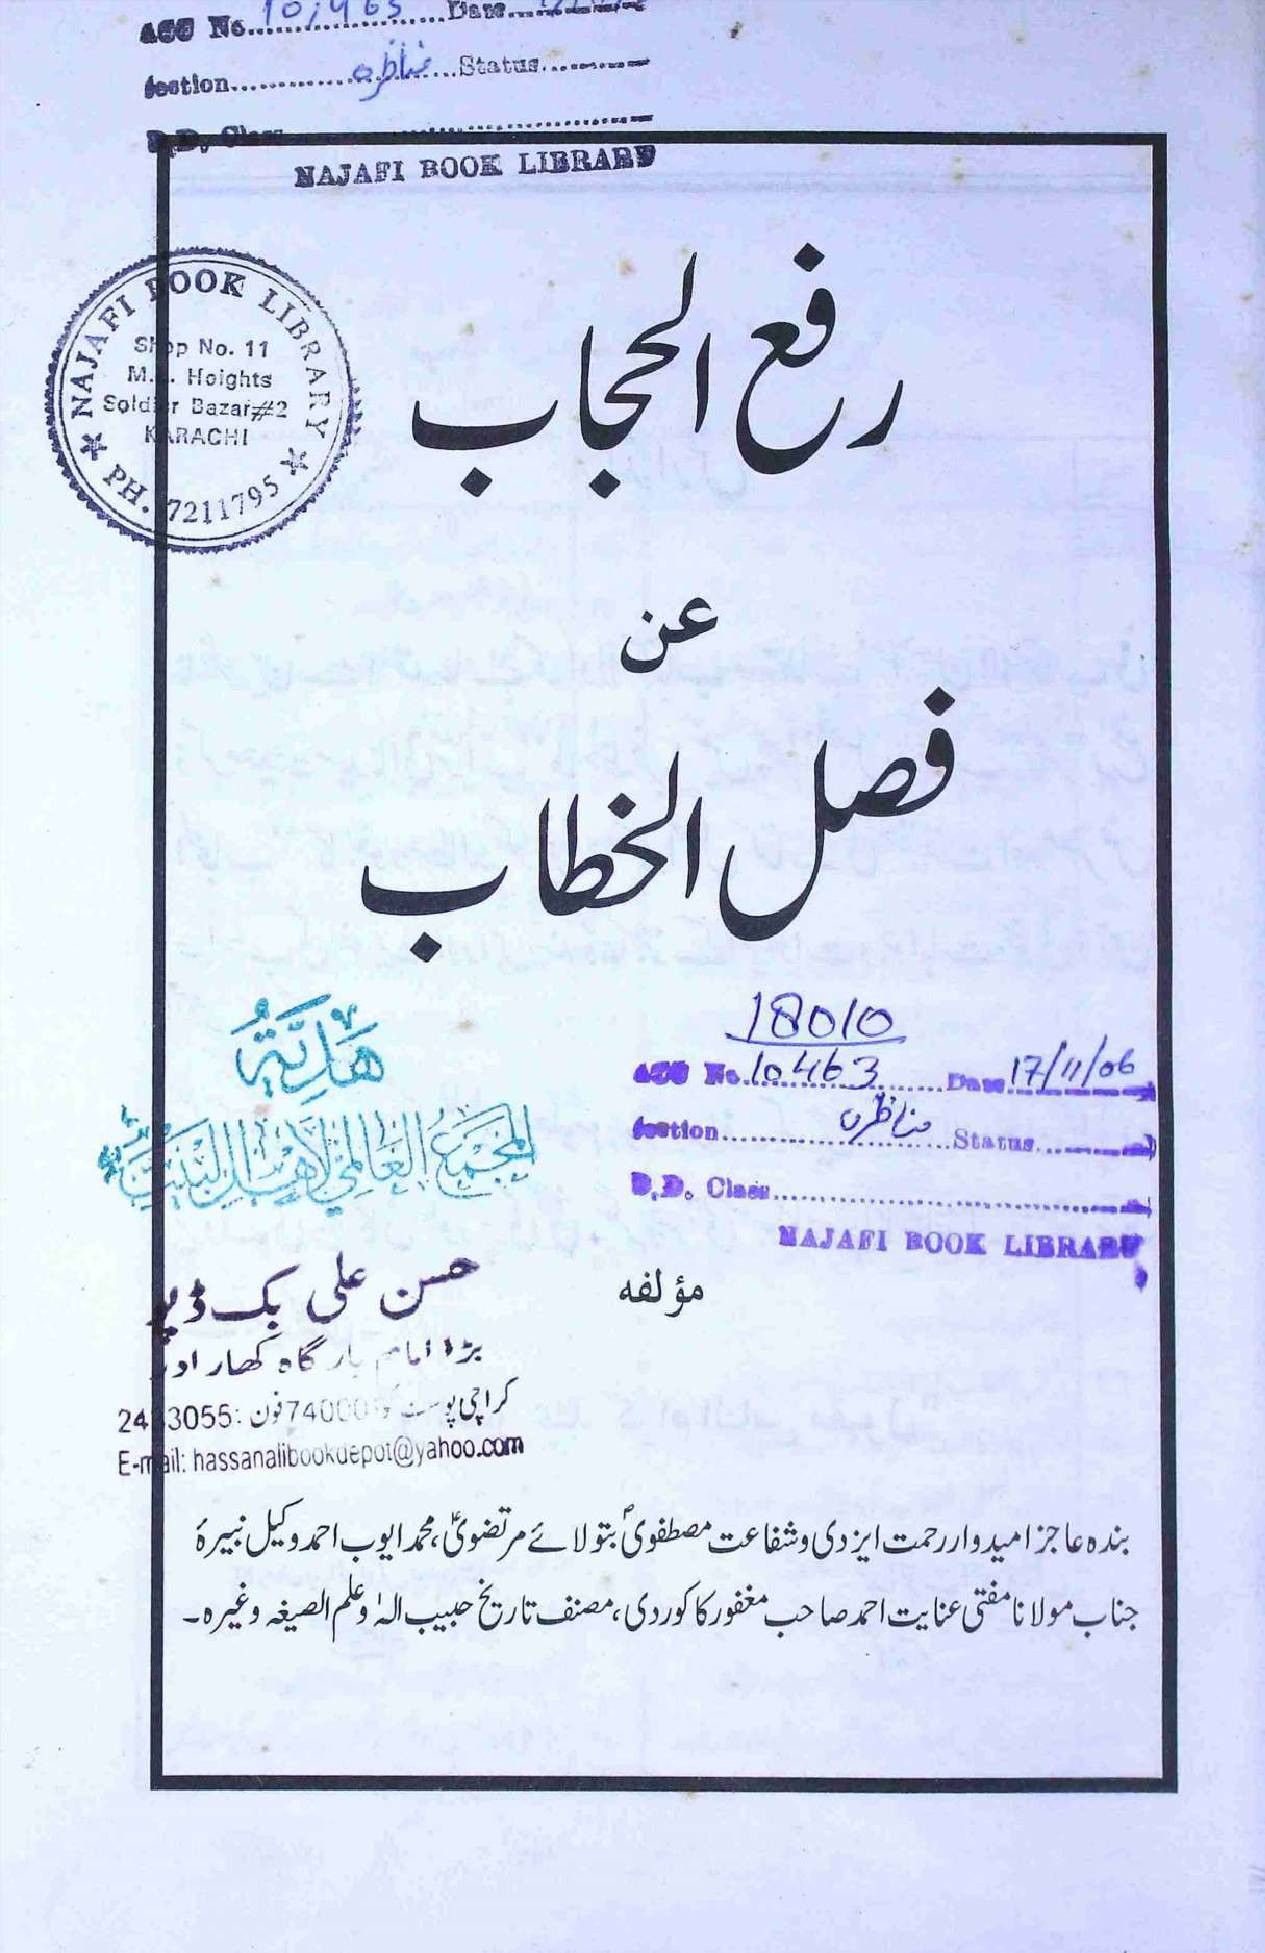 ACC No. 10,463 Date
Section مناظرہ Status
D.D. Class
NAJAFI BOOK LIBRARY
NAJAFI BOOK LIBRARY
Shop No. 11
M.L. Heights
Soldier Bazar #2
KARACHI
PH. 7211795
رفع الحجاب
عن
فصل الخطاب
18010
ACC No. 10463 Date 17/11/06
Section مناظرہ Status
D.D. Class
NAJAFI BOOK LIBRARY
هدية
المجمع العالمي لأهل البيت
مؤلفہ
حسن علی بک ڈپو
بڑا امام بارگاہ کھارادر
کراچی پوسٹ کوڈ 74000 فون :2433055
E-mail: hassanalibookdepot@yahoo.com
بندہ عاجز امیدوار رحمت ایزدی و شفاعت مصطفویؐ بتولائے مرتضویؑ، محمد ایوب احمد وکیل نبیرۂ
جناب مولانا مفتی عنایت احمد صاحب مغفور کاکوردی، مصنف تاریخ حبیب الہٰ و علم الصیغہ وغیرہ۔